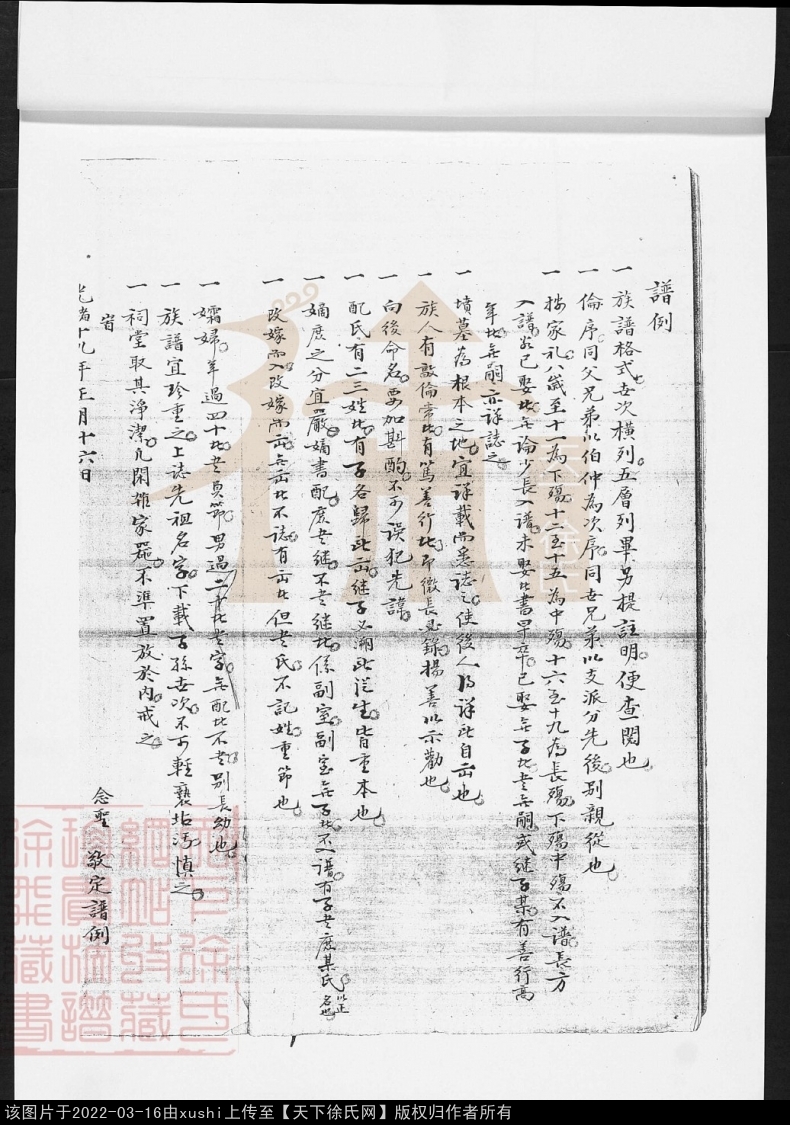 譜例
一族譜格式世次橫列五層列畢另提註明便查閱也
一倫序同父兄弟以伯仲為次序同世兄弟以支派分先後別親從也
一按家礼八歲至十一為下殤十二至十五為中殤十六至十九為長殤下殤中殤不入譜長方
入譜若已娶此無論少長入譜未娶此書早卒已娶無子此書無嗣或継子某有善行高
年此無嗣亦詳誌之
一墳墓為根本之地宜詳載而悉誌之使後人得詳此自出也
一族人有敦倫常此有篤善行此即微長必録揚善以示勸也
一向後命名要加斟酌不可誤犯先諱
一配氏有二三姓此有子各歸此出継子必溯此從生皆重本也
一嫡庶之分宜嚴嫡書配庶書継不書継此係副室副室無子此不入譜有子書庶某氏以正名也
一改嫁而入改嫁而出無出此不誌有出此但書氏不記姓重節也
一孀婦年過四十此書貞節男過二十此書字無配此不書別長幼也
一族譜宜珍重之上誌先祖名字下載子孫世次不可輕褻玷污慎之
一祠堂取其淨潔凡閑雜家器不準置放於內戒之
旹
光緒十九年正月十六日
念聖 敬定譜例
天下徐氏
該图片于2022-03-16由xushi上传至【天下徐氏网】版权归作者所有